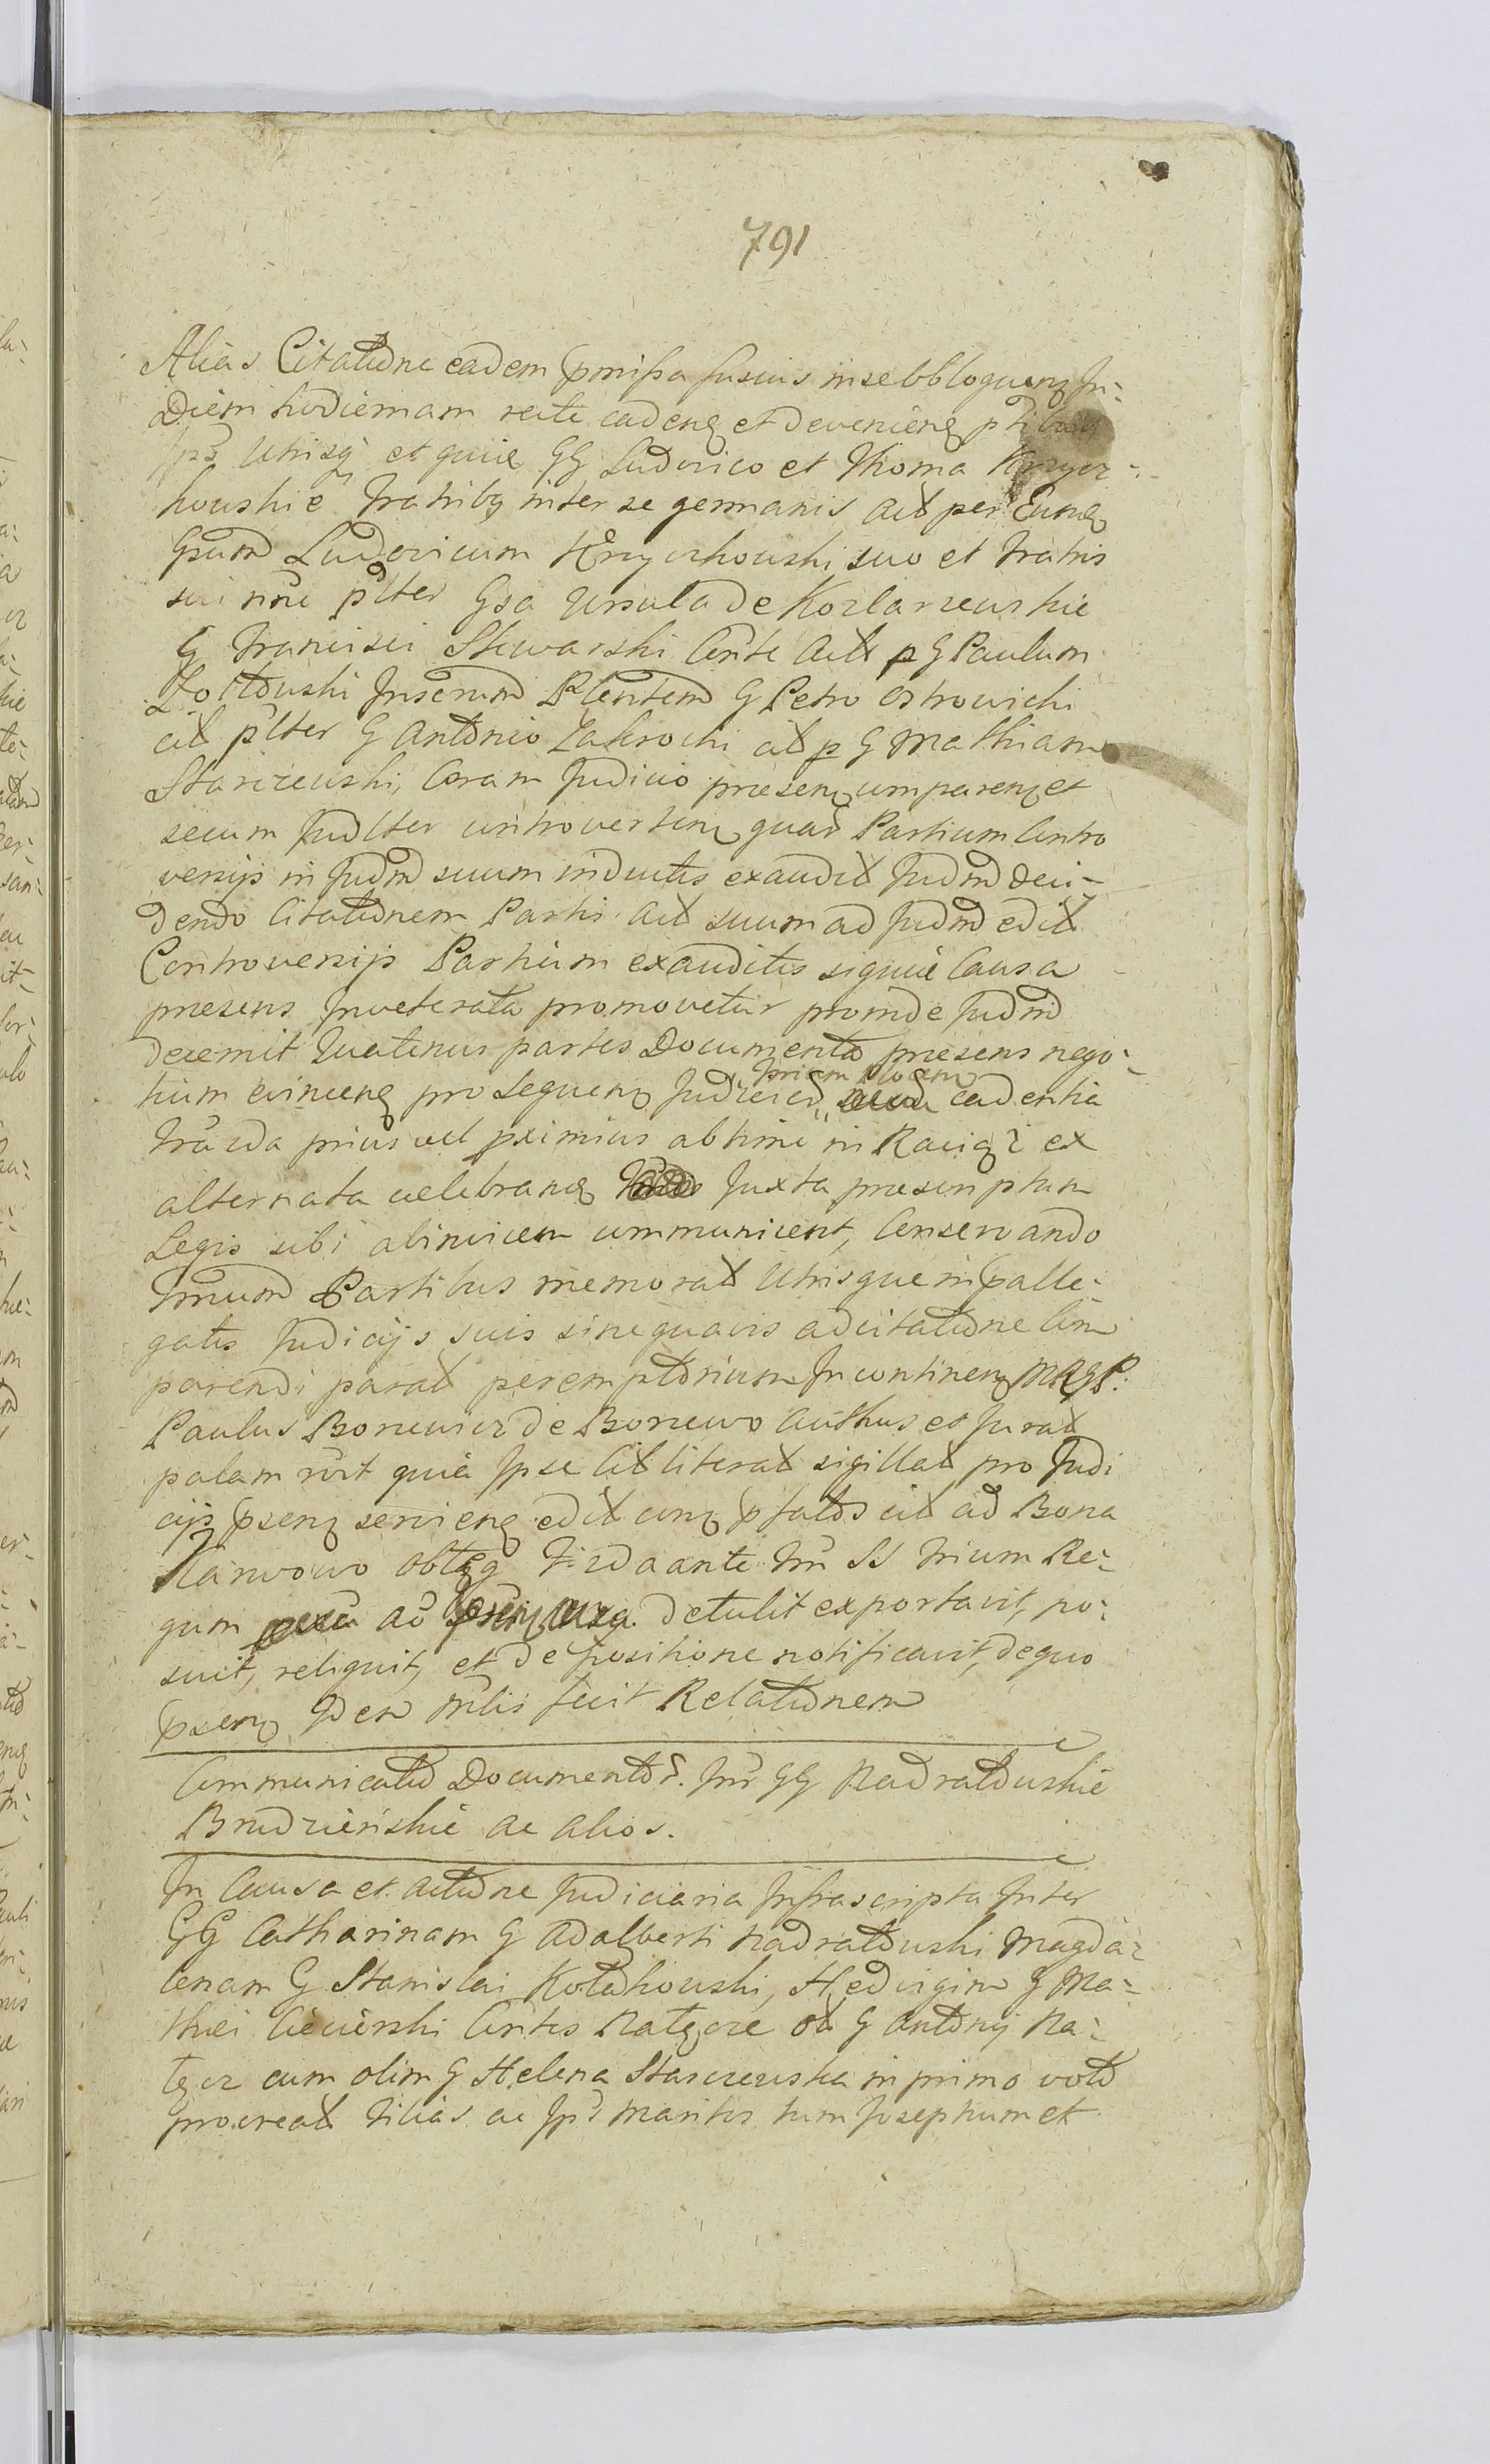 791
Alias Citatione eadem pmissa fusius in se obloquen In-
Diem hodiernam recte caden et devenien ptibus
ips Utrisq et quie GG Ludovico et Thoma Krzycz-
kowskie Fratribq inter se germanis Act per Eunq
Gsum Ludovicum Krzyczkowski suo et Fratris
sui nne plter Gsa Ursula de Kozlarzewskie
G Francisci Skwarski Cnte Act p G Paulum
Zoltowski Juscrum Pltentem G Petro Ostrowicki
cit plter G Antonio Zakrocki cit p G Mathiam
Starczewski, Coram Judicio praesen comparen et
secum Judlter controverten quar Partium Contro
versijs in Judm suum inductis exaudit Judm deci-
dendo Citationem Parti Act suum ad Judm edit
Controversijs Partium exauditis siquie Causa
praesens Inveterata promovetur proinde Judm
decernit Quatenus partes Documenta praesens nego-
tium evincen pro sequen Judicior cadentia
Fra 2da prius vel pximius abhinc in Raciąż ex
alternata celebran Juxta praescriptum
Legis sibi abinvicem communicent, Conservando
Tmum Partibus memorat Utrisque in palle-
gatis Judicijs suis sine quavis adcitatione Com
parendi parat peremptorium Incontinen MRGP.
Paulus Boncwicz de Boncwo Authus et Jurat
palam rvit quia Ipse Cit literat sigillat pro Judi
cijs psen servien edit cum pfatos cit ad Bona
Karwowo obteg F 2da ante Fm SS Trium Re-
gum ao detulit exportavit, po-
suit, reliquit, et de positione notificavit, de quo
psen Idem mlis fecit Relationem
Communicatio Documentor. Intr GG Nadratowskie
Brudzieńskie ac alios.
In Causa et actione Judiciaria Infrascripta Inter
GG Catharinam G Adalberti Nadratowski Magda-
lenam G Stanislai Kolakowski, Hedvigim G Ma-
thiei Cieciерski Cntes Nategcze ol G Antonij Na-
tęcz cum olim G Helena Starczewska in primo voto
procreat Filias ac Ips maritos tum Josephum et